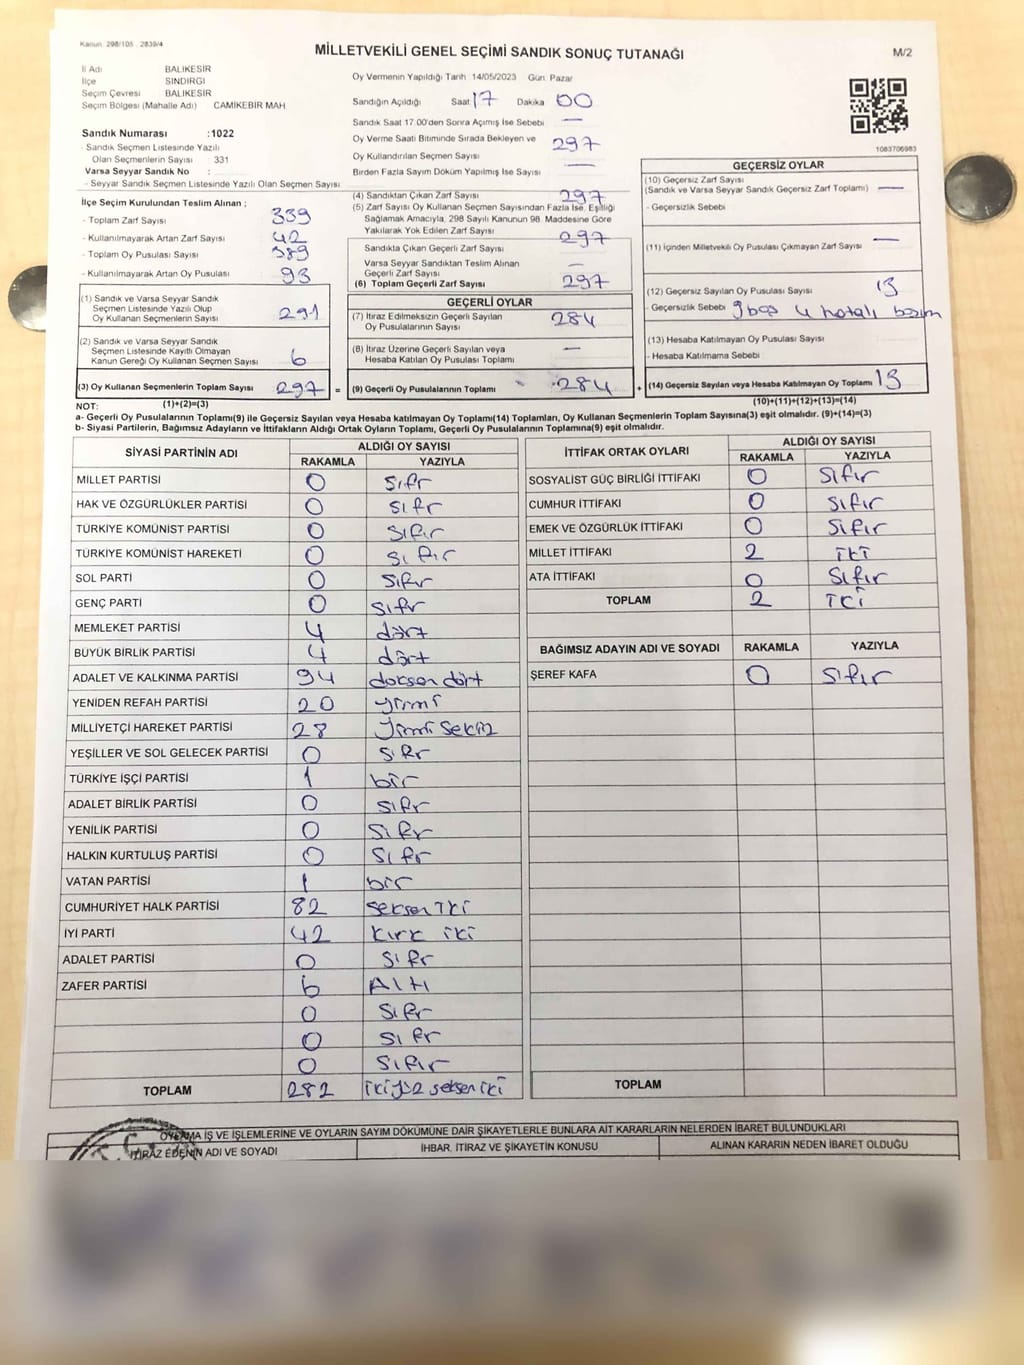 Kanun: 298/105 , 2839/4
MİLLETVEKİLİ GENEL SEÇİMİ SANDIK SONUÇ TUTANAĞI
M/2
İl Adı BALIKESİR
İlçe SINDIRGI
Seçim Çevresi BALIKESİR
Seçim Bölgesi (Mahalle Adı) CAMİKEBİR MAH
Sandık Numarası :1022
- Sandık Seçmen Listesinde Yazılı
Olan Seçmenlerin Sayısı : 331
Varsa Seyyar Sandık No :
- Seyyar Sandık Seçmen Listesinde Yazılı Olan Seçmen Sayısı
İlçe Seçim Kurulundan Teslim Alınan ;
- Toplam Zarf Sayısı : 339
- Kullanılmayarak Artan Zarf Sayısı : 42
- Toplam Oy Pusulası Sayısı : 389
- Kullanılmayarak Artan Oy Pusulası : 93
(1) Sandık ve Varsa Seyyar Sandık
Seçmen Listesinde Yazılı Olup
Oy Kullanan Seçmenlerin Sayısı : 291
(2) Sandık ve Varsa Seyyar Sandık
Seçmen Listesinde Kayıtlı Olmayan
Kanun Gereği Oy Kullanan Seçmen Sayısı : 6
(3) Oy Kullanan Seçmenlerin Toplam Sayısı : 297 =
(1)+(2)=(3)
Oy Vermenin Yapıldığı Tarih 14/05/2023 Gün: Pazar
Sandığın Açıldığı Saat 17 Dakika 00
Sandık Saat 17:00'den Sonra Açımış İse Sebebi : —
Oy Verme Saati Bitiminde Sırada Bekleyen ve
Oy Kullandırılan Seçmen Sayısı : 297
Birden Fazla Sayım Döküm Yapılmış İse Sayısı : —
(4) Sandıktan Çıkan Zarf Sayısı : 297
(5) Zarf Sayısı Oy Kullanan Seçmen Sayısından Fazla İse, Eşitliği
Sağlamak Amacıyla, 298 Sayılı Kanunun 98. Maddesine Göre
Yakılarak Yok Edilen Zarf Sayısı :
Sandıkta Çıkan Geçerli Zarf Sayısı : 297
Varsa Seyyar Sandıktan Teslim Alınan
Geçerli Zarf Sayısı : —
(6) Toplam Geçerli Zarf Sayısı : 297
GEÇERLİ OYLAR
(7) İtiraz Edilmeksizin Geçerli Sayılan
Oy Pusulalarının Sayısı : 284
(8) İtiraz Üzerine Geçerli Sayılan veya
Hesaba Katılan Oy Pusulası Toplamı : —
(9) Geçerli Oy Pusulalarının Toplamı : 284 +
1083706983
GEÇERSİZ OYLAR
(10) Geçersiz Zarf Sayısı
(Sandık ve Varsa Seyyar Sandık Geçersiz Zarf Toplamı) : —
- Geçersizlik Sebebi :
(11) İçinden Milletvekili Oy Pusulası Çıkmayan Zarf Sayısı : —
(12) Geçersiz Sayılan Oy Pusulası Sayısı : 13
- Geçersizlik Sebebi : 9 boş 4 hatalı basım
(13) Hesaba Katılmayan Oy Pusulası Sayısı :
- Hesaba Katılmama Sebebi :
(14) Geçersiz Sayılan veya Hesaba Katılmayan Oy Toplamı : 13
(10)+(11)+(12)+(13)=(14)
NOT:
a- Geçerli Oy Pusulalarının Toplamı(9) ile Geçersiz Sayılan veya Hesaba katılmayan Oy Toplamı(14) Toplamları, Oy Kullanan Seçmenlerin Toplam Sayısına(3) eşit olmalıdır. (9)+(14)=(3)
b- Siyasi Partilerin, Bağımsız Adayların ve İttifakların Aldığı Ortak Oyların Toplamı, Geçerli Oy Pusulalarının Toplamına(9) eşit olmalıdır.
SİYASİ PARTİNİN ADI ALDIĞI OY SAYISI
RAKAMLA YAZIYLA
MİLLET PARTİSİ 0 sıfr
HAK VE ÖZGÜRLÜKLER PARTİSİ 0 sıfr
TÜRKİYE KOMÜNİST PARTİSİ 0 sıfır
TÜRKİYE KOMÜNİST HAREKETİ 0 sıfır
SOL PARTİ 0 sıfır
GENÇ PARTİ 0 sıfr
MEMLEKET PARTİSİ 4 dört
BÜYÜK BİRLİK PARTİSİ 4 dört
ADALET VE KALKINMA PARTİSİ 94 doksan dört
YENİDEN REFAH PARTİSİ 20 yirmi
MİLLİYETÇİ HAREKET PARTİSİ 28 yirmi sekiz
YEŞİLLER VE SOL GELECEK PARTİSİ 0 sıfr
TÜRKİYE İŞÇİ PARTİSİ 1 bir
ADALET BİRLİK PARTİSİ 0 sıfr
YENİLİK PARTİSİ 0 sıfr
HALKIN KURTULUŞ PARTİSİ 0 sıfr
VATAN PARTİSİ 1 bir
CUMHURİYET HALK PARTİSİ 82 seksen iki
İYİ PARTİ 42 kırk iki
ADALET PARTİSİ 0 sıfr
ZAFER PARTİSİ 6 Altı
0 sıfr
0 sıfr
0 sıfır
TOPLAM 282 ikiyüz seksen iki
İTTİFAK ORTAK OYLARI ALDIĞI OY SAYISI
RAKAMLA YAZIYLA
SOSYALİST GÜÇ BİRLİĞİ İTTİFAKI 0 sıfır
CUMHUR İTTİFAKI 0 sıfır
EMEK VE ÖZGÜRLÜK İTTİFAKI 0 sıfır
MİLLET İTTİFAKI 2 iki
ATA İTTİFAKI 0 sıfır
TOPLAM 2 iki
BAĞIMSIZ ADAYIN ADI VE SOYADI RAKAMLA YAZIYLA
ŞEREF KAFA 0 sıfır
TOPLAM
OYLAMA İŞ VE İŞLEMLERİNE VE OYLARIN SAYIM DÖKÜMÜNE DAİR ŞİKAYETLERLE BUNLARA AİT KARARLARIN NELERDEN İBARET BULUNDUKLARI
İTİRAZ EDENİN ADI VE SOYADI İHBAR, İTİRAZ VE ŞİKAYETİN KONUSU ALINAN KARARIN NEDEN İBARET OLDUĞU